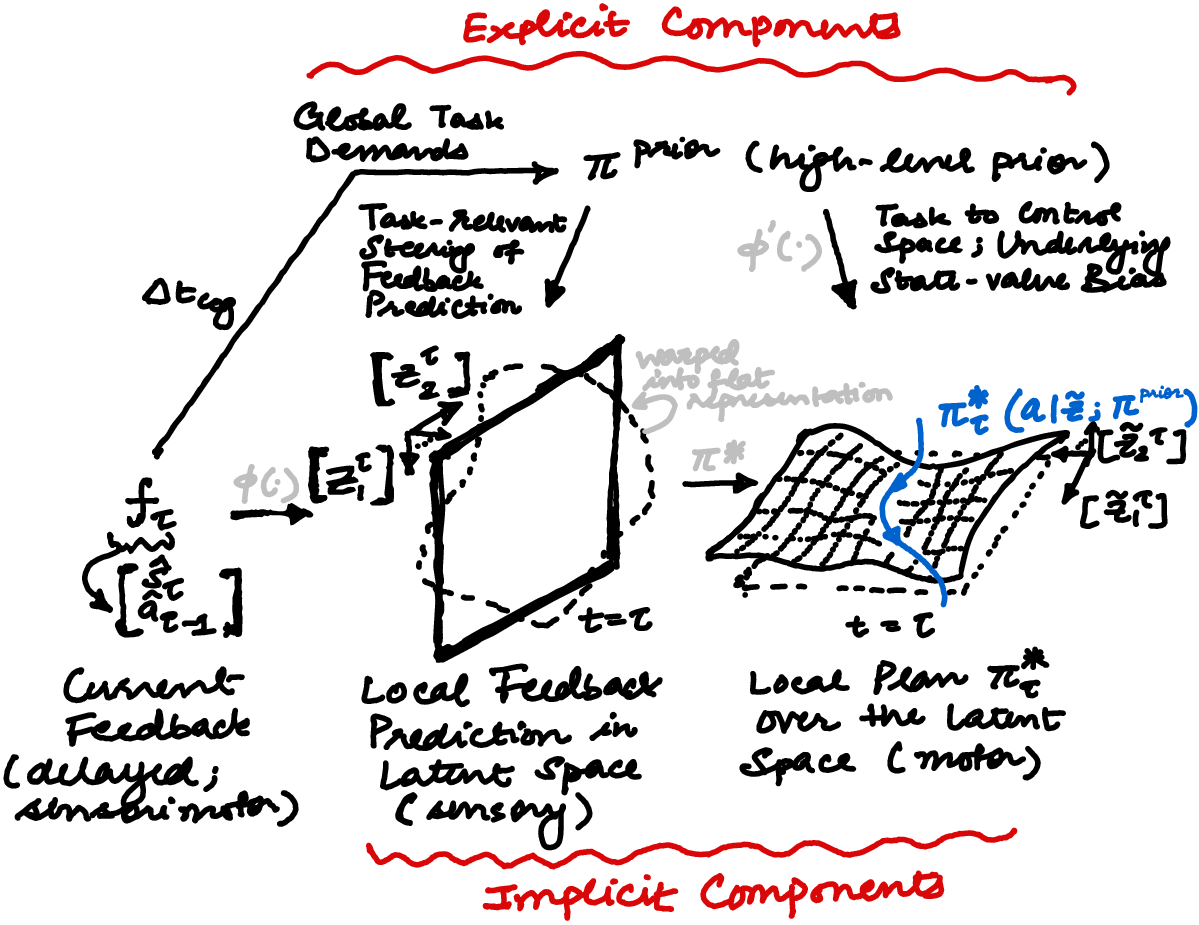 Explicit Components
Global Task
Demands
π^prior (high-level prior)
Task-relevant
Steering of
Feedback
Prediction
ϕ'(·)
Task to Control
Space; Underlying
State-value Bias
Δt_cog
[z_2^τ]
warped
into flat
representation
π*_τ (a|z̃; π^prior)
[z̃_2^τ]
ϕ(·)
[z_1^τ]
π*
[z̃_1^τ]
f_τ
[ŝ_τ
â_τ-1]
t=τ
t=τ
Current
Feedback
(delayed;
sensorimotor)
Local Feedback
Prediction in
Latent Space
(sensory)
Local Plan π*_τ
over the Latent
Space (motor)
Implicit Components